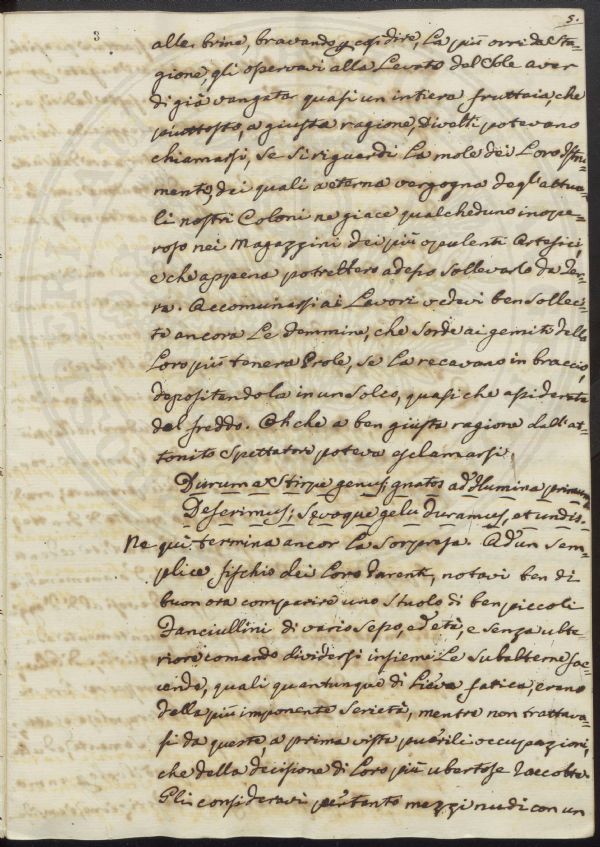 3
5.
alle brine, bravando p così dire, la più orrida Sta=
gione, gli osservavi alla Levata del Sole aver
di già vangata quasi un intiera fruttaia, che
piuttosto, a giusta ragione, divelti potevano
chiamarsi, se si riguardi la mole dei Loro Istru=
menti, dei quali a eterna vergogna degl'attua=
li nostri Coloni ne giace qualcheduno inope=
roso nei Magazzini dei più opulenti Artefici,
e che appena potrebbero adesso sollevarlo da ter=
ra. Accomunarsi ai Lavori vedevi ben solleci=
te ancora Le femmine, che sorde ai gemiti della
Loro più tenera Prole, se La recavano in braccio,
depositandola in un Solco, quasi che assiderata
dal freddo. Oh che a ben giusta ragione dall'at=
tonito Spettatore poteva esclamarsi
Durum a Stirpe genus; gnatos ad flumina primum
Deferimus; sevoque gelu duramus, et undis.
Ne quì termina ancor La sorpresa. Ad un sem=
plice fischio dei Loro Parenti, notavi ben di
buon ora comparire uno stuolo di ben piccoli
Fanciullini di vario sesso, ed età, e senza ulte=
riore comando dividersi insieme Le subalterne fac=
cende, quali quantunque di Lieve fatica, erano
della più imponente serietà, mentre non trattava=
si da queste, a prima vista puerili occupazioni,
che della decisione di Loro più ubertose raccolte.
Gli consideravi pertanto mezzi nudi con un